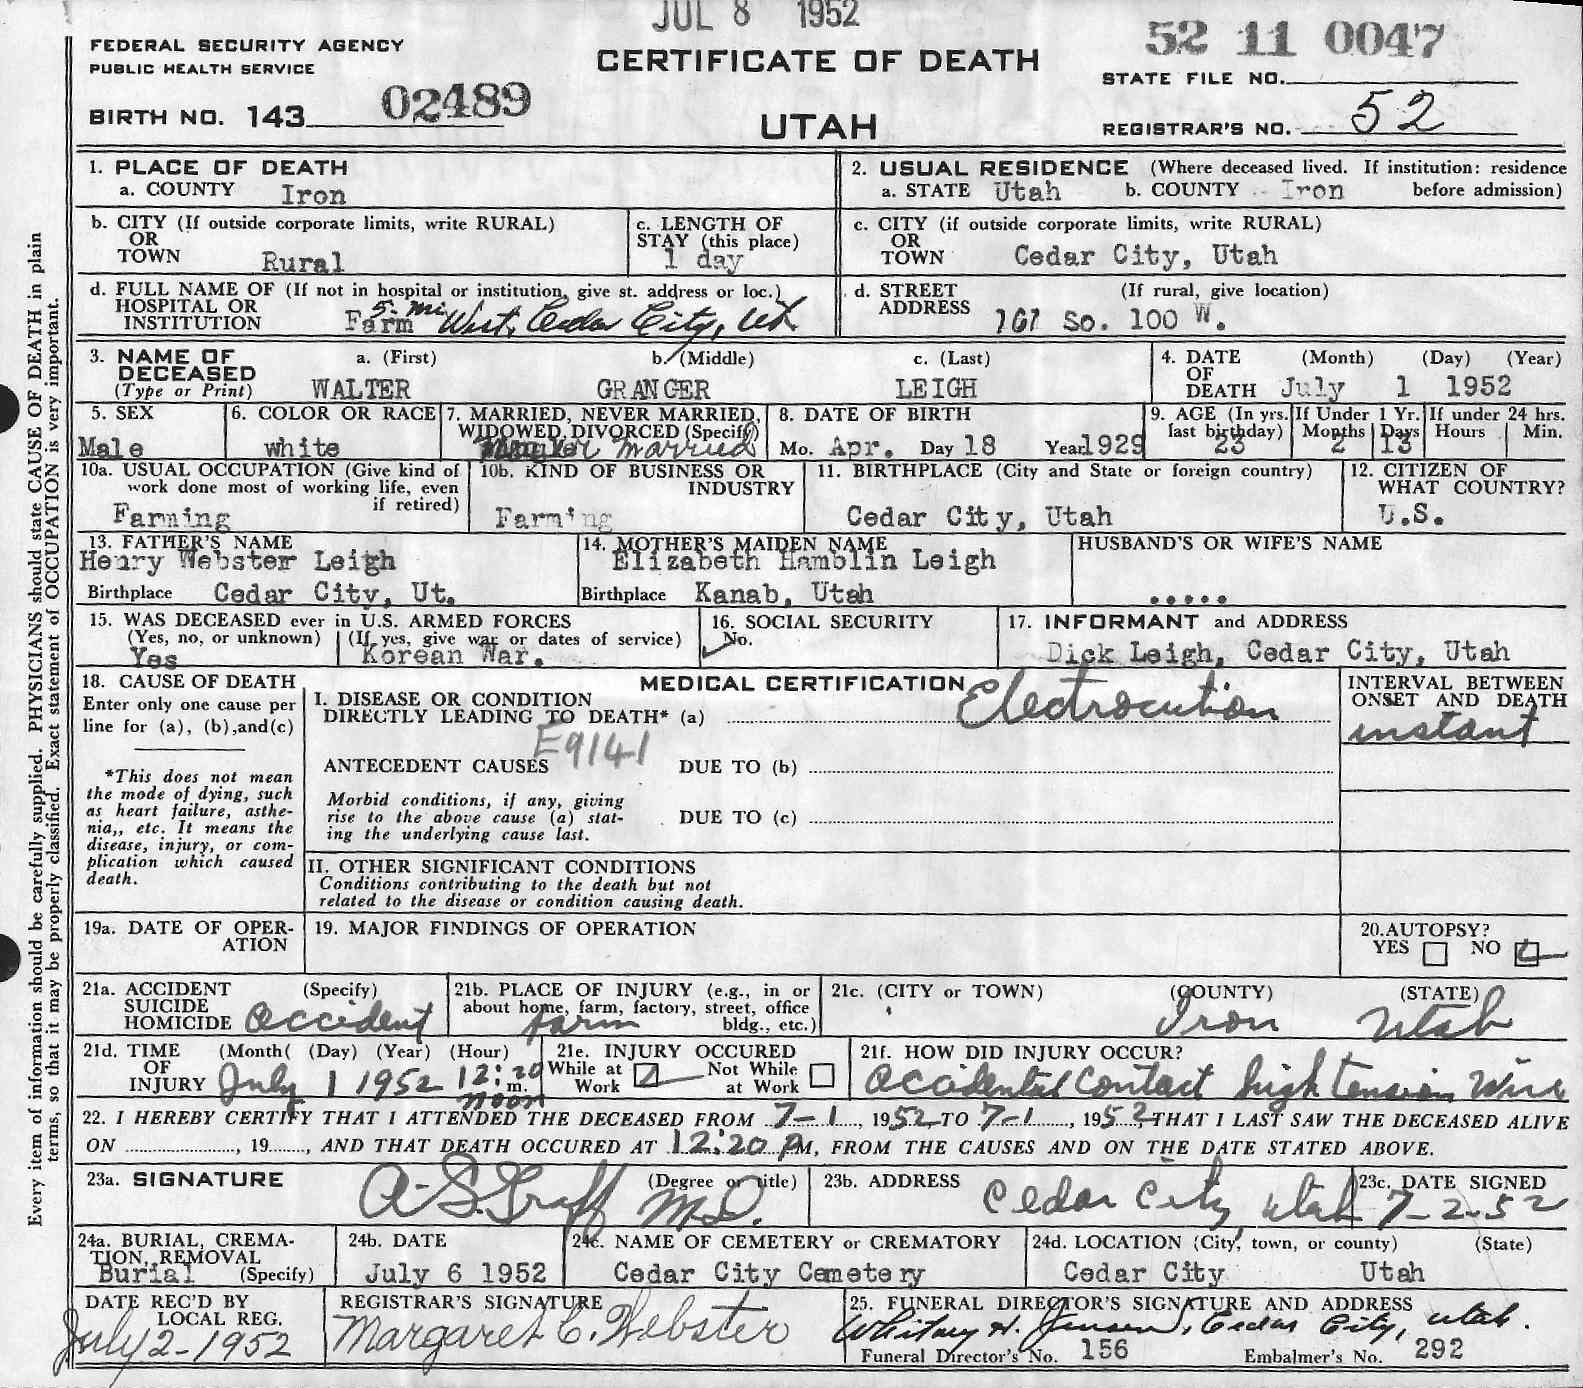 JUL 8 1952
FEDERAL SECURITY AGENCY
PUBLIC HEALTH SERVICE
BIRTH NO. 143 02489
CERTIFICATE OF DEATH
UTAH
52 11 0047
STATE FILE NO.
REGISTRAR'S NO. 52
Every item of information should be carefully supplied. PHYSICIANS should state CAUSE OF DEATH in plain
terms, so that it may be properly classified. Exact statement of OCCUPATION is very important.
1. PLACE OF DEATH
a. COUNTY Iron
2. USUAL RESIDENCE (Where deceased lived. If institution: residence
a. STATE Utah b. COUNTY Iron before admission)
b. CITY (If outside corporate limits, write RURAL)
OR
TOWN Rural
c. LENGTH OF
STAY (this place)
1 day
c. CITY (if outside corporate limits, write RURAL)
OR
TOWN Cedar City, Utah
d. FULL NAME OF (If not in hospital or institution, give st. address or loc.)
HOSPITAL OR
INSTITUTION Farm 5. mi West, Cedar City, Ut
d. STREET (If rural, give location)
ADDRESS 161 So. 100 W.
3. NAME OF DECEASED
(Type or Print)
a. (First) b. (Middle) c. (Last)
WALTER GRANGER LEIGH
4. DATE OF DEATH (Month) (Day) (Year)
July 1 1952
5. SEX
Male
6. COLOR OR RACE
white
7. MARRIED, NEVER MARRIED,
WIDOWED, DIVORCED (Specify)
married
8. DATE OF BIRTH
Mo. Apr. Day 18 Year 1929
9. AGE (In yrs. last birthday)
23
If Under 1 Yr.
Months Days
2 13
If under 24 hrs.
Hours Min.
10a. USUAL OCCUPATION (Give kind of
work done most of working life, even
if retired)
Farming
10b. KIND OF BUSINESS OR
INDUSTRY
Farming
11. BIRTHPLACE (City and State or foreign country)
Cedar City, Utah
12. CITIZEN OF
WHAT COUNTRY?
U.S.
13. FATHER'S NAME
Henry Webster Leigh
Birthplace Cedar City, Ut.
14. MOTHER'S MAIDEN NAME
Elizabeth Hamblin Leigh
Birthplace Kanab, Utah
HUSBAND'S OR WIFE'S NAME
.....
15. WAS DECEASED ever in U.S. ARMED FORCES
(Yes, no, or unknown) (If yes, give war or dates of service)
Yes Korean War.
16. SOCIAL SECURITY
No.
17. INFORMANT and ADDRESS
Dick Leigh, Cedar City, Utah
18. CAUSE OF DEATH
Enter only one cause per
line for (a), (b),and(c)
*This does not mean
the mode of dying, such
as heart failure, asthe-
nia,, etc. It means the
disease, injury, or com-
plication which caused
death.
MEDICAL CERTIFICATION
I. DISEASE OR CONDITION
DIRECTLY LEADING TO DEATH* (a) Electrocution
E9141
ANTECEDENT CAUSES DUE TO (b)
Morbid conditions, if any, giving
rise to the above cause (a) stat-
ing the underlying cause last.
DUE TO (c)
II. OTHER SIGNIFICANT CONDITIONS
Conditions contributing to the death but not
related to the disease or condition causing death.
INTERVAL BETWEEN
ONSET AND DEATH
instant
19a. DATE OF OPER-
ATION
19. MAJOR FINDINGS OF OPERATION
20.AUTOPSY?
YES NO
21a. ACCIDENT (Specify)
SUICIDE
HOMICIDE accident
21b. PLACE OF INJURY (e.g., in or
about home, farm, factory, street, office
bldg., etc.)
farm
21c. (CITY or TOWN) (COUNTY) (STATE)
Iron Utah
21d. TIME (Month( (Day) (Year) (Hour)
OF
INJURY July 1 1952 12:20 m.
noon
21e. INJURY OCCURED
While at Work Not While at Work
21f. HOW DID INJURY OCCUR?
accidental contact high tension wire
22. I HEREBY CERTIFY THAT I ATTENDED THE DECEASED FROM 7-1, 1952 TO 7-1, 1952, THAT I LAST SAW THE DECEASED ALIVE
ON , 19 , AND THAT DEATH OCCURED AT 12:20 PM, FROM THE CAUSES AND ON THE DATE STATED ABOVE.
23a. SIGNATURE (Degree or title)
A-S. Graff M.D.
23b. ADDRESS
Cedar City, Utah
23c. DATE SIGNED
7-2-52
24a. BURIAL, CREMA-
TION, REMOVAL
Burial (Specify)
24b. DATE
July 6 1952
24c. NAME OF CEMETERY OR CREMATORY
Cedar City Cemetery
24d. LOCATION (City, town, or county) (State)
Cedar City Utah
DATE REC'D BY
LOCAL REG.
July 2-1952
REGISTRAR'S SIGNATURE
Margaret C. Webster
25. FUNERAL DIRECTOR'S SIGNATURE AND ADDRESS
Whitney H. Jensen, Cedar City, Utah.
Funeral Director's No. 156 Embalmer's No. 292